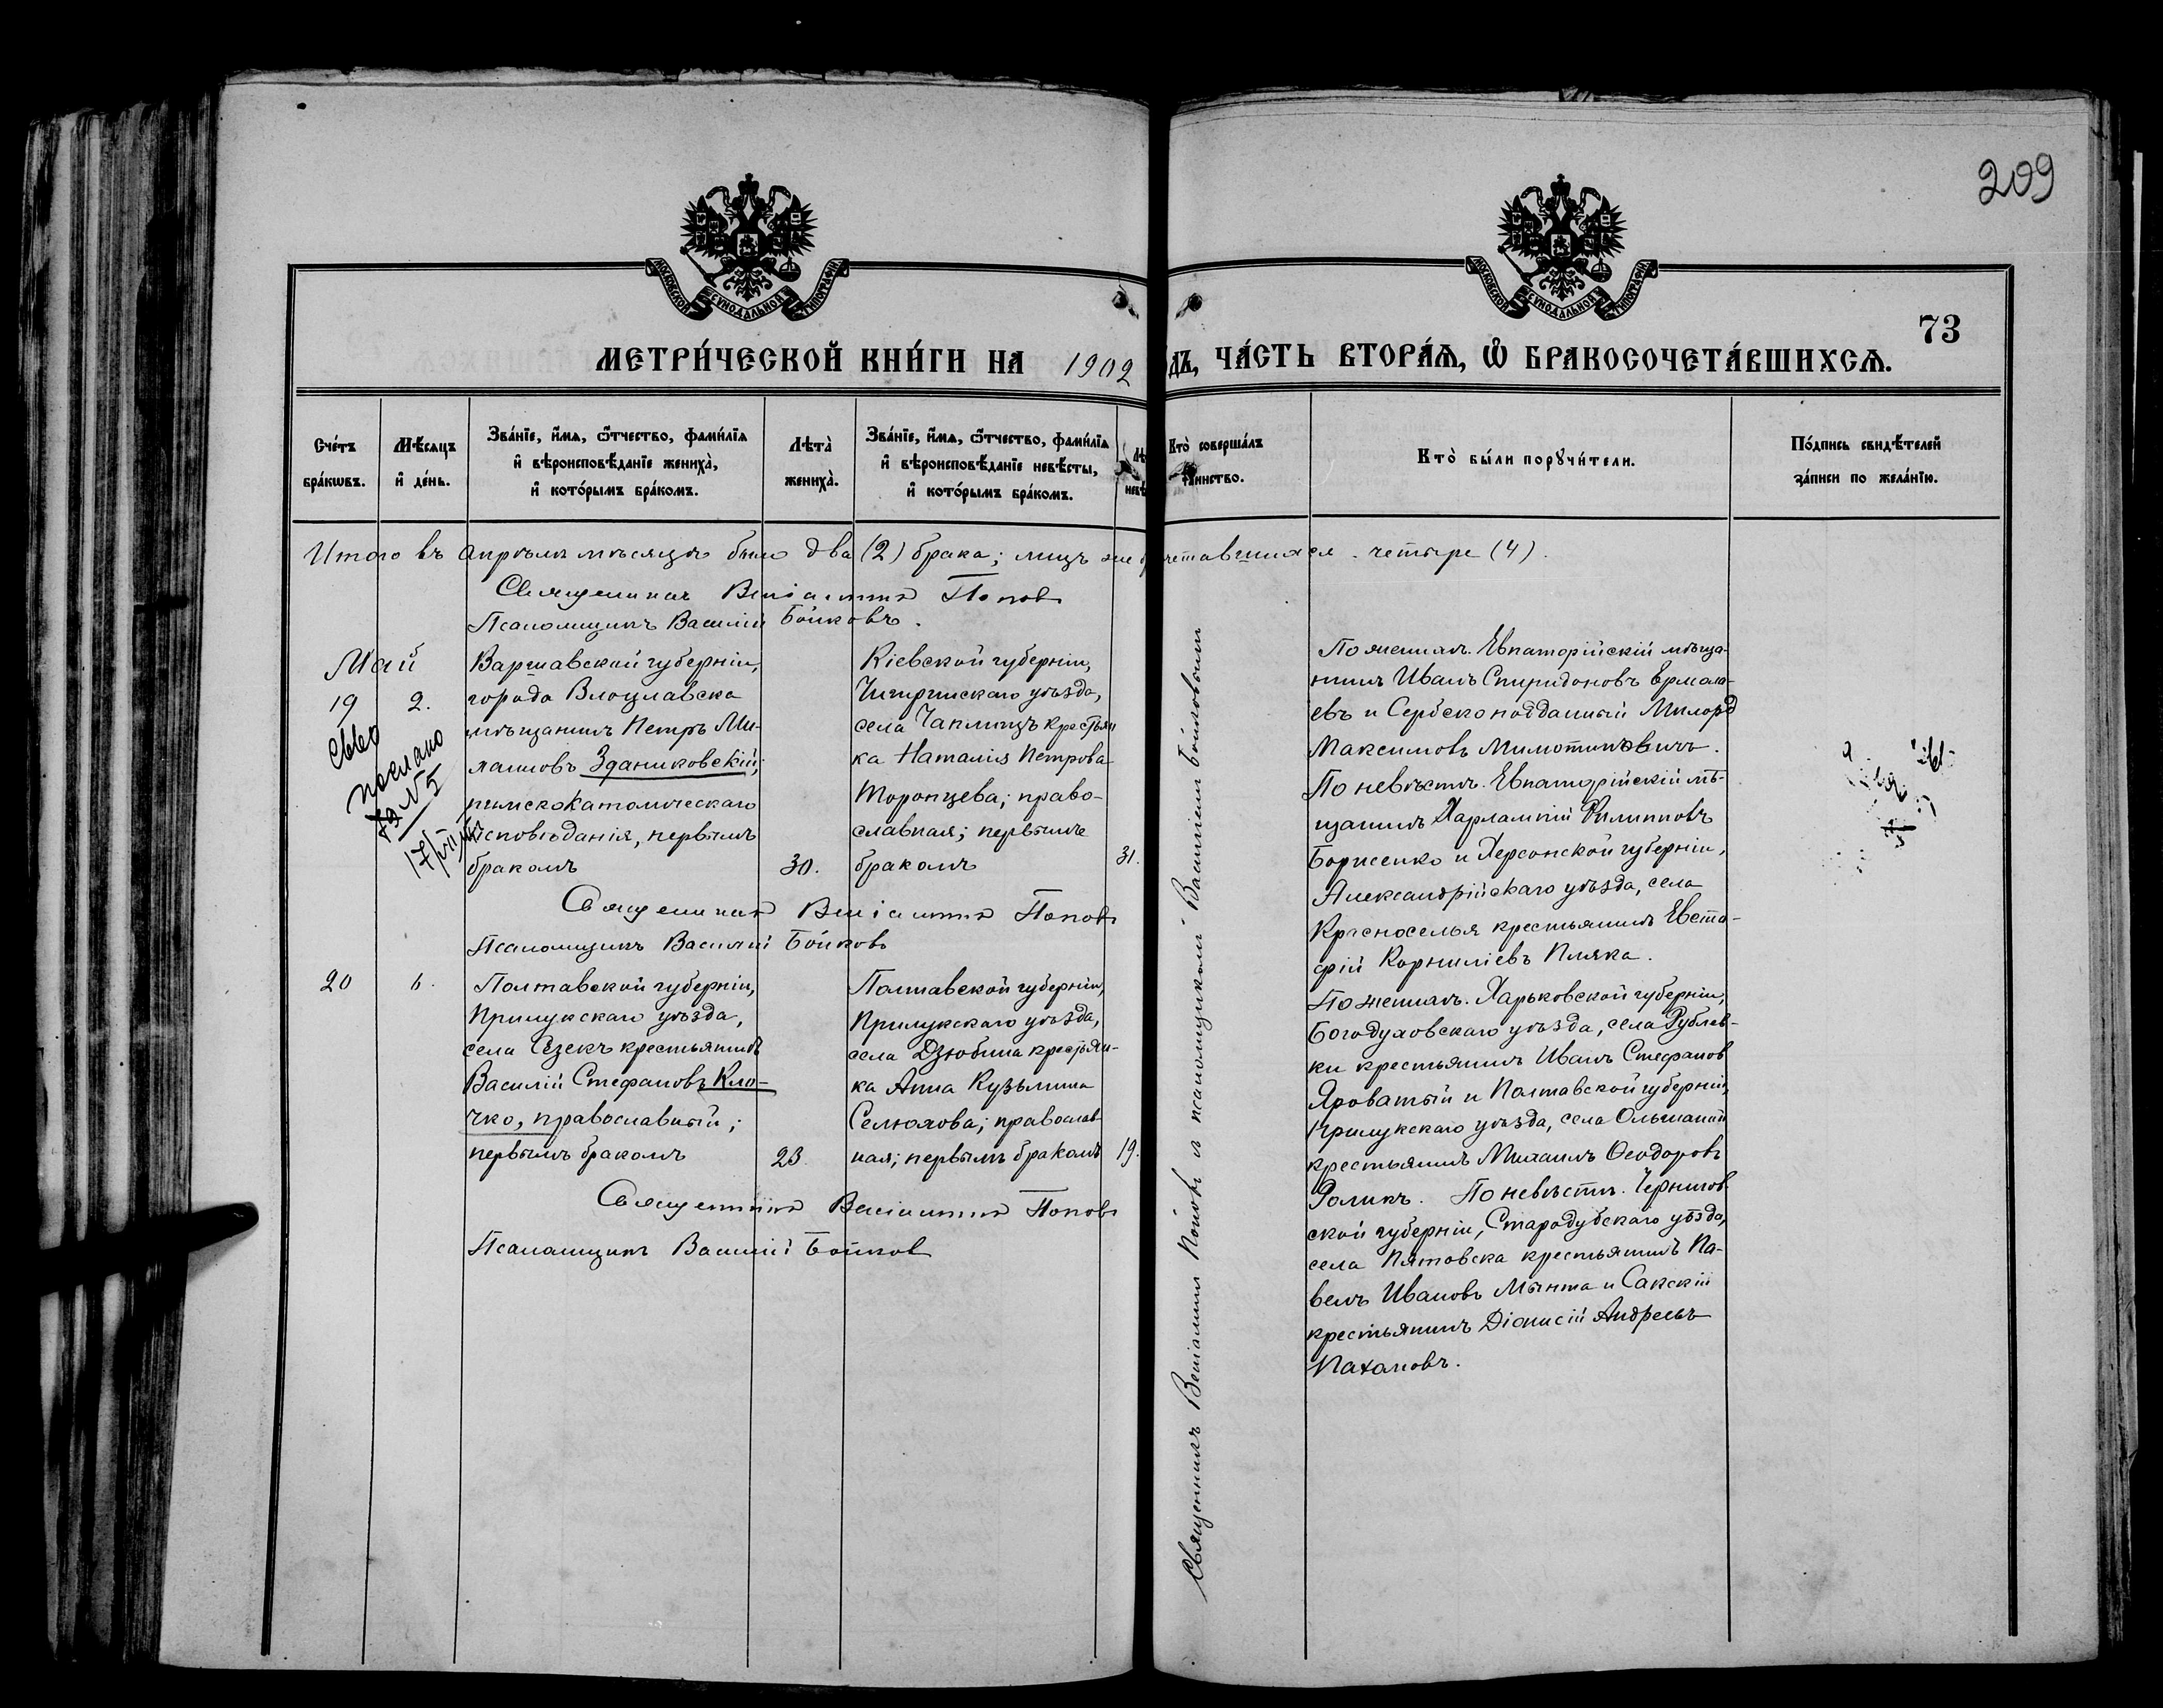 209
МОСКОВСКОЙ СѴНОДАЛЬНОЙ ТИПОГРАФІИ
МОСКОВСКОЙ СѴНОДАЛЬНОЙ ТИПОГРАФІИ
73
МЕТРИ́ЧЕСКОЙ КНИ́ГИ НА 1902
ДЪ, ЧА́СТЬ ВТОРА́Ѧ, Ѽ БРАКОСОЧЕТА́ВШИХСѦ.
Сче́тъ бра́кѡвъ.
Мѣ́сяцъ и҆ де́нь.
Зва́нїе, и҆́мѧ, ѻ҆́тчество, фами́лїѧ и҆ вѣроисповѣ́данїе жениха̀, и҆ кото́рымъ бра́комъ.
Лѣта̀ жениха̀.
Зва́нїе, и҆́мѧ, ѻ҆́тчество, фами́лїѧ и҆ вѣроисповѣ́данїе невѣ́сты, и҆ кото́рымъ бра́комъ.
Кто̀ соверша́лъ
Кто̀ бы́ли порꙋчи́тели.
По́дпись свидѣ́телей за́писи по жела́нїю.
Итого въ апрѣлѣ мѣсяцѣ было два (2) брака; лицъ же четавшихся четыре (4).
Священникъ Веніаминъ Поповъ
Псаломщикъ Василій Бойковъ.
Май
19 2.
Варшавской губерніи,
города Влоцлавска
мѣщанинъ Петръ Ми-
хаиловъ Здановскій;
римскокатолическаго
исповѣданія, первымъ
бракомъ
30.
Кіевской губерніи,
Чигиринскаго уѣзда,
села Чаплищъ крестьян
ка Наталія Петрова
Торопцева; право-
славная; первымъ
бракомъ
31.
послано
№ 5
Священникъ Веніаминъ Поповъ
Псаломщикъ Василій Бойковъ
По женихѣ. Евпаторійскій мѣща-
нинъ Иванъ Спиридоновъ Ермола-
евъ и Сербскоподданный Милорд
Максимовъ Милотиновичъ.
По невѣстѣ. Евпаторійскій мѣ-
щанинъ Харлампій Филипповъ
Борисенко и Херсонской губерніи,
Александрійскаго уѣзда, села
Красноселья крестьянинъ Евста-
фій Корниліевъ Пляка.
20 6.
Полтавской губерніи,
Прилукскаго уѣзда,
села Сезекъ крестьянинъ
Василій Стефановъ Кло-
чко, православный;
первымъ бракомъ
23.
Полтавской губерніи,
Прилукскаго уѣзда,
села Дзюбина крестьян-
ка Анна Кузьмина
Селюкова; православ
ная; первымъ бракомъ
19.
Священникъ Веніаминъ Поповъ
Псаломщикъ Василій Бойков
По женихѣ. Харьковской губерніи,
Богодуховскаго уѣзда, села Рублев-
ки крестьянинъ Иванъ Стефанов
Яроватый и Полтавской губерніи,
Прилукскаго уѣзда, села Ольшаной
крестьянинъ Михаилъ Ѳеодоровъ
Роликъ. По невѣстѣ. Чернигов
ской губерніи, Стародубскаго уѣзда,
села Пятовска крестьянинъ Па-
велъ Ивановъ Мынта и Сакскій
крестьянинъ Діонисій Андреевъ
Пахановъ.
Священникъ Веніаминъ Поповъ и псаломщикомъ Василіемъ Бойковымъ